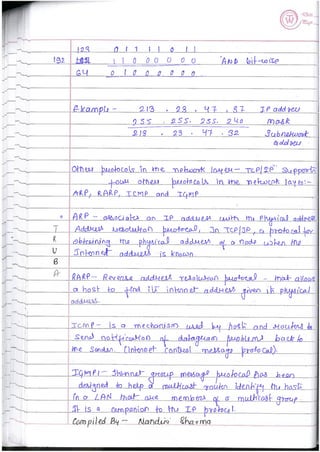 123 0 1 1 1 1 0 1 1
192 1 1 0 0 0 0 0 0 AND bit-wise
64 0 1 0 0 0 0 0 0
Example - 213 . 23 . 47 . 37 IP address
255 . 255. 255. 240 mask
213 . 23 . 47 . 32 Subnetwork
address
Other protocols in the network layer - TCP/IP supports
four other protocols in the network layer:-
ARP, RARP, ICMP and IGMP
ARP - associates an IP address with the Physical address
Address resolution protocol, In TCP/IP, a protocol for
obtaining the physical address of a node when the
Internet address is known
TRUBA
RARP - Reverse address resolution protocol - that allows
a host to find its internet address given its physical
address.
ICMP - Is a mechanism used by hosts and routers to
Send notification of datagram problems back to
the sender. (Internet control message protocol)
IGMP - Internet group message protocol has been
designed to help a multicast router identify the hosts
in a LAN that are members of a multicast group
It is a companion to the IP protocol
Compiled By - Nandini Sharma